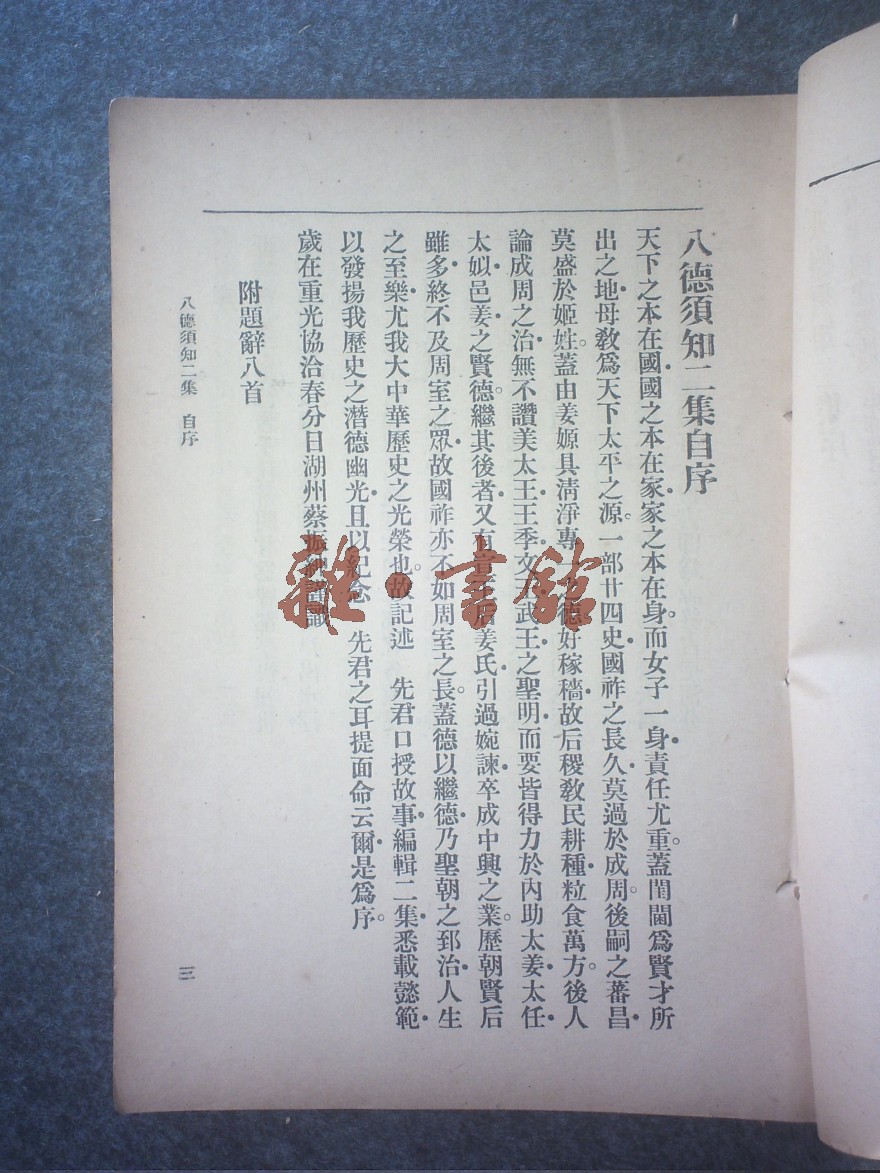 八德須知二集自序
天下之本在國．國之本在家．家之本在身。而女子一身．責任尤重。蓋閨閫爲賢才所
出之地．母敎爲天下太平之源。一部廿四史．國祚之長久．莫過於成周。後嗣之蕃昌．
莫盛於姬姓。蓋由姜嫄具淸淨專一之德．好稼穡．故后稷敎民耕種．粒食萬方。後人
論成周之治．無不讚美太王．王季．文王．武王．之聖明．而要皆得力於內助太姜．太任．
太姒．邑姜．之賢德。繼其後者．又有宣王后姜氏．引過婉諫．卒成中興之業。歷朝賢后
雖多．終不及周室之眾．故國祚亦不如周室之長。蓋德以繼德．乃聖朝之郅治．人生
之至樂．尤我大中華歷史之光榮也。故記述　先君口授故事．編輯二集．悉載懿範．
以發揚我歷史之潛德幽光．且以紀念　先君之耳提面命云爾．是爲序。
歲在重光協洽春分日湖州蔡振紳謹識
附題辭八首
八德須知二集　自序
三
雜·書館